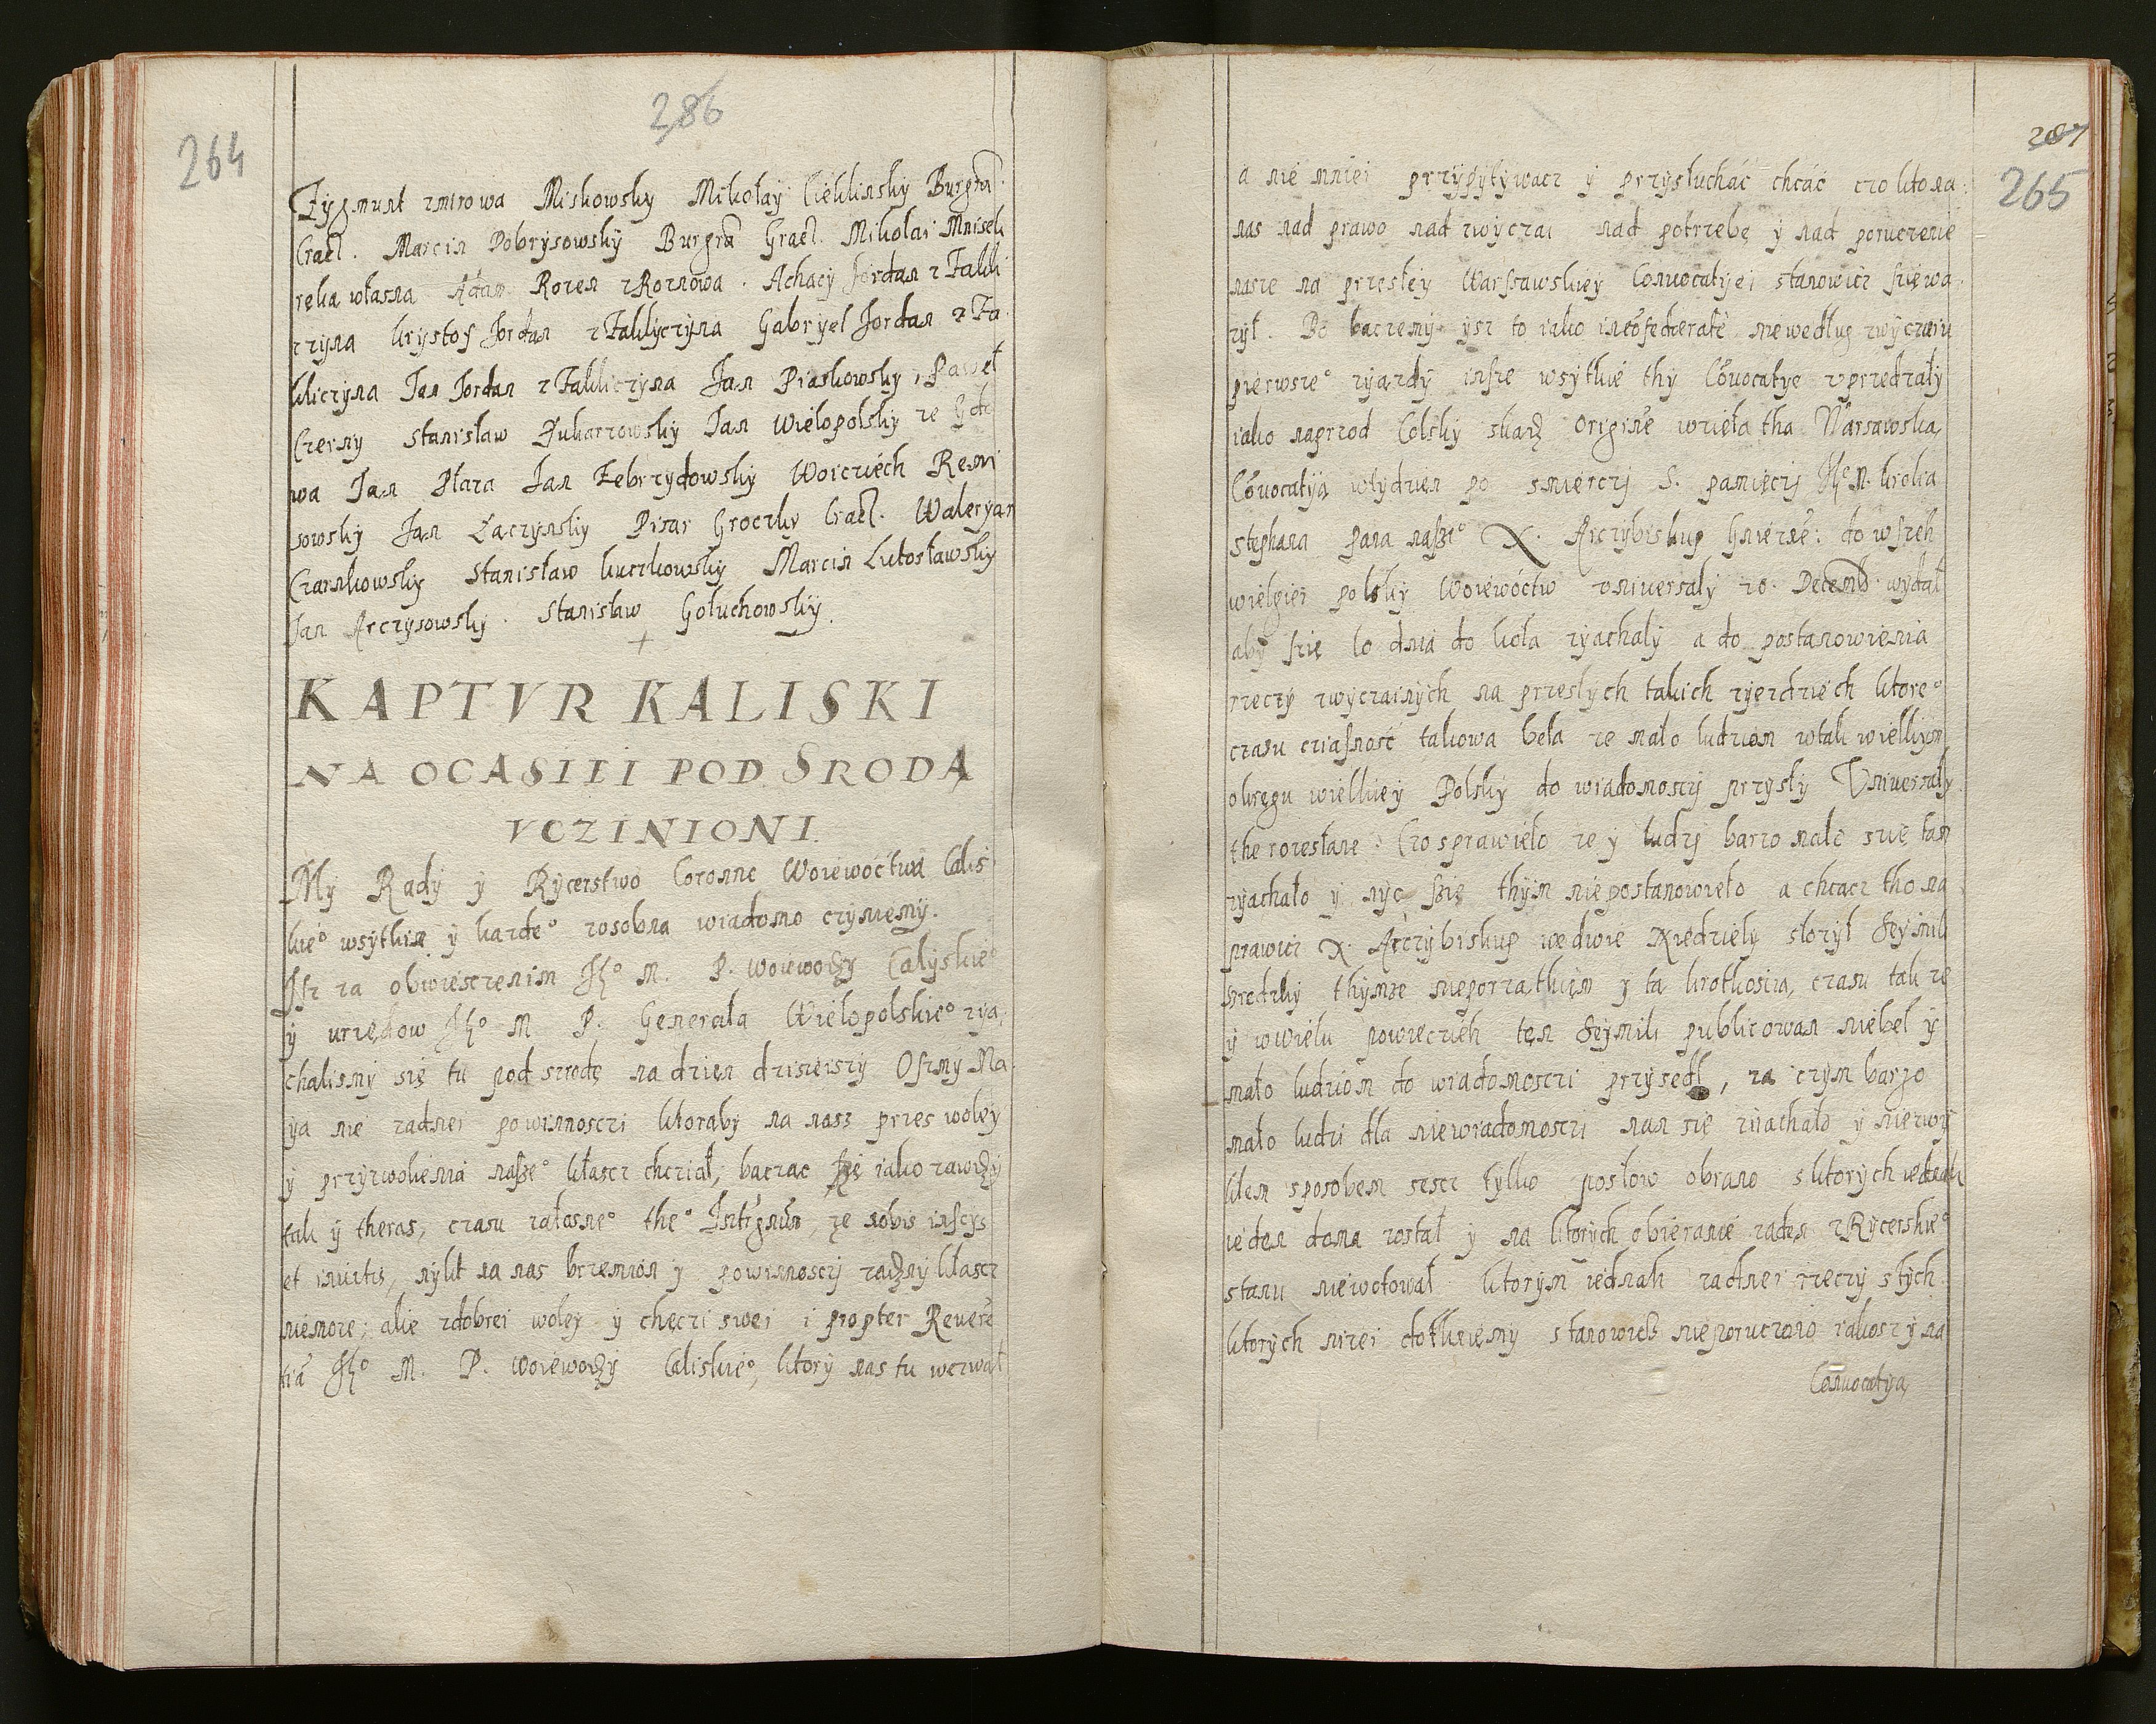 286
264
Zygmunt z mirowa Miskowsky Mikołaÿ Cieklinskÿ Burgra
Crac. Marcin Dobrÿsowskÿ Burgra Grac. Mikołai Mnisek
reka własna Adam Rozen z Roznowa. Achacÿ Jordan z Zakli
czÿna krÿstof Jordan z Zaklÿczÿna Gabryel Jordan z Za
kliczÿna Jan Jordan z Zakliczÿna Jan Piaskowskÿ, Paweł
Czerny Stanisław Jan Wielopolskÿ ze Gdo
wa Jan Płaza Jan Zebrzydowskÿ Woiczièch Remi
sowskÿ Jan Łaczynskÿ Pisar Groczkÿ Crac. Walerÿan
Czarnkowskÿ Stanisław kuczkowskÿ Marcin Lutosławskÿ
Jan Arczÿsowskÿ. Stanisław Gołuchowskÿ.
KAPTVR KALISKI
NA OCASIII POD SRODA
VCZINIONI.
Mÿ Radÿ ÿ Rÿcerstwo Coronne Woiewoctwa Calis
kie° wsÿtkim ÿ kazde° zosobna wiadomo czÿniemÿ.
Isz za obwiesczenim Jh° M. P. Woiewodzÿ Calÿskie°
ÿ urzedow Jh° M P. Generała Wielopolskie° zÿa,
chalismÿ się tu pod srzodę na dzien dzisieiszÿ Osmÿ Ma
ÿa nie zadnei powinnosczi ktoraby na nasz przes woleÿ
ÿ przÿzwolenia nasze° kłascz chcział, baczac szię iako zawdzÿ
tak ÿ theras, czasu załosne° the° Intrgnum, ze nobis insciis
et inuitis, nÿkt na nas brzemion ÿ powinnosczj zadznÿ kłascz
niemoze; alie zdobrei woleÿ ÿ chęczi swei i propter Reuere
tia Jh° M. P. Woiewodzÿ Caliskie°, ktorÿ nas tu wezwał
287
265
a nie mniei przÿpÿtÿwacz ÿ przÿsłuchać chcąć czo ktona
nas nad prawo nad zwÿczai nad potrzebę ÿ nad poruczenie
nasze na przesłeÿ Warszawskieÿ Conuocatiei stanowicz sięwa
zÿł. Bo baczemÿ ÿsz to iako incofederatè niewedlug zwÿczaiu
pierwsze° zÿazdÿ insze wsÿtkie thÿ Couocatye vprzedzałÿ
iako naprzod Colskÿ skąd origine wzięła tha Warsawska,
Couocatÿa wtÿdzien po smierczj S. pamięczj Jh° M. krolia
Stephana Pana nasze° X. Arczÿbiskup Gniezne: do wszeh
wielgiei polskÿ Woiewòctw vniuersałÿ 20. Decemb. wÿdał
abÿ szię 10 dnia do koła zÿachalÿ a do postanowienia
rzeczÿ zwÿczainÿch na przesłÿch takich zÿezdziech ktore°
czasu cziasność takowa beła ze mało ludziom wtak wielkiÿm
okręgu wielkieÿ Polskÿ do wiadomosczj przÿsłÿ Vniuersałÿ
the rozesłane: Czo sprawieło ze ÿ ludzj barzo małe się tam
zÿachało ÿ nÿc szię thÿm niepostanowieło a chcacz tho na
prawicz X. Arczÿbiskup wedwie Niedzielÿ złozÿł Seÿmik
srzedzkÿ thÿmze nieporzatkięm ÿ ta krotkoscia, czasu tak ze
ÿ wwielu powieczieh ten Seÿmik publicowan niebeł ÿ
mało ludziom do wiadomosczi przÿsedł, za czÿm barzo
mało ludzi dla niewiadomosczi nan się ziachało ÿ niezwÿ
kłem sposobem szesc tÿlko posłow obrano sktorÿch iednak
ieden doma został ÿ na ktorÿch obieranie zaden z Rÿcerskie°
stanu niewotował ktorÿm iednak zadnei rzeczÿ stÿch
ktorÿch nizei dotkniemÿ stanowicz nieporuczono iakosz ÿ na
Conuocatÿa,